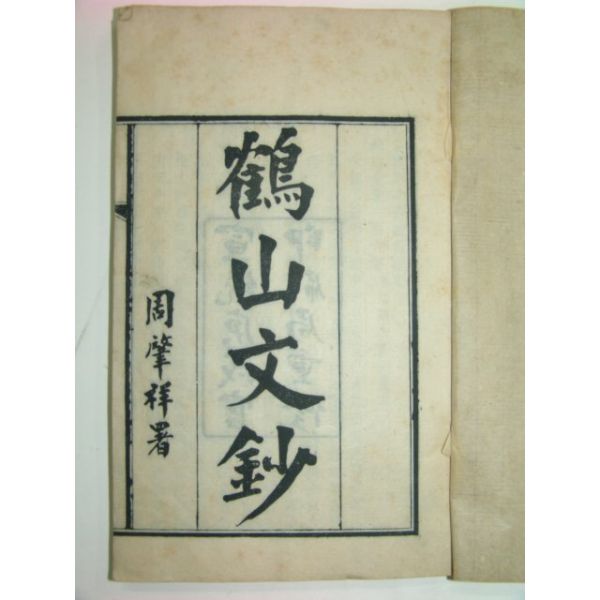 鶴山文鈔
周肇祥署